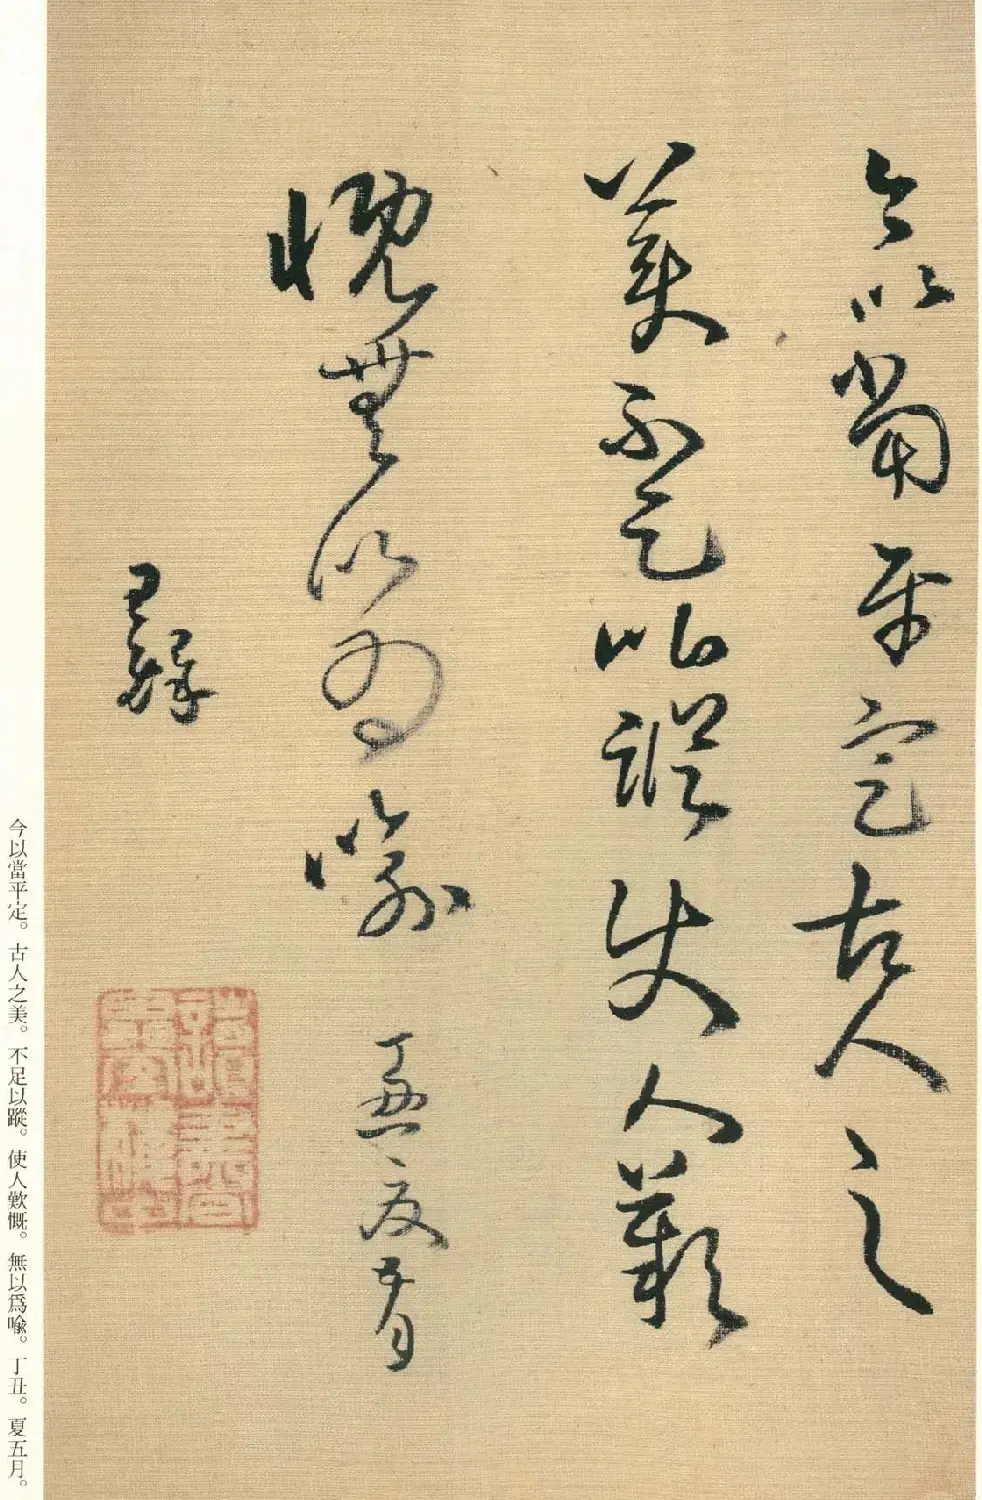 今以當平定古人之
美不足以蹤使人歎
慨無以為喻 丁丑夏五月
王鐸
今以當平定。古人之美。不足以蹤。使人歎慨。無以爲喻。丁丑。夏五月。